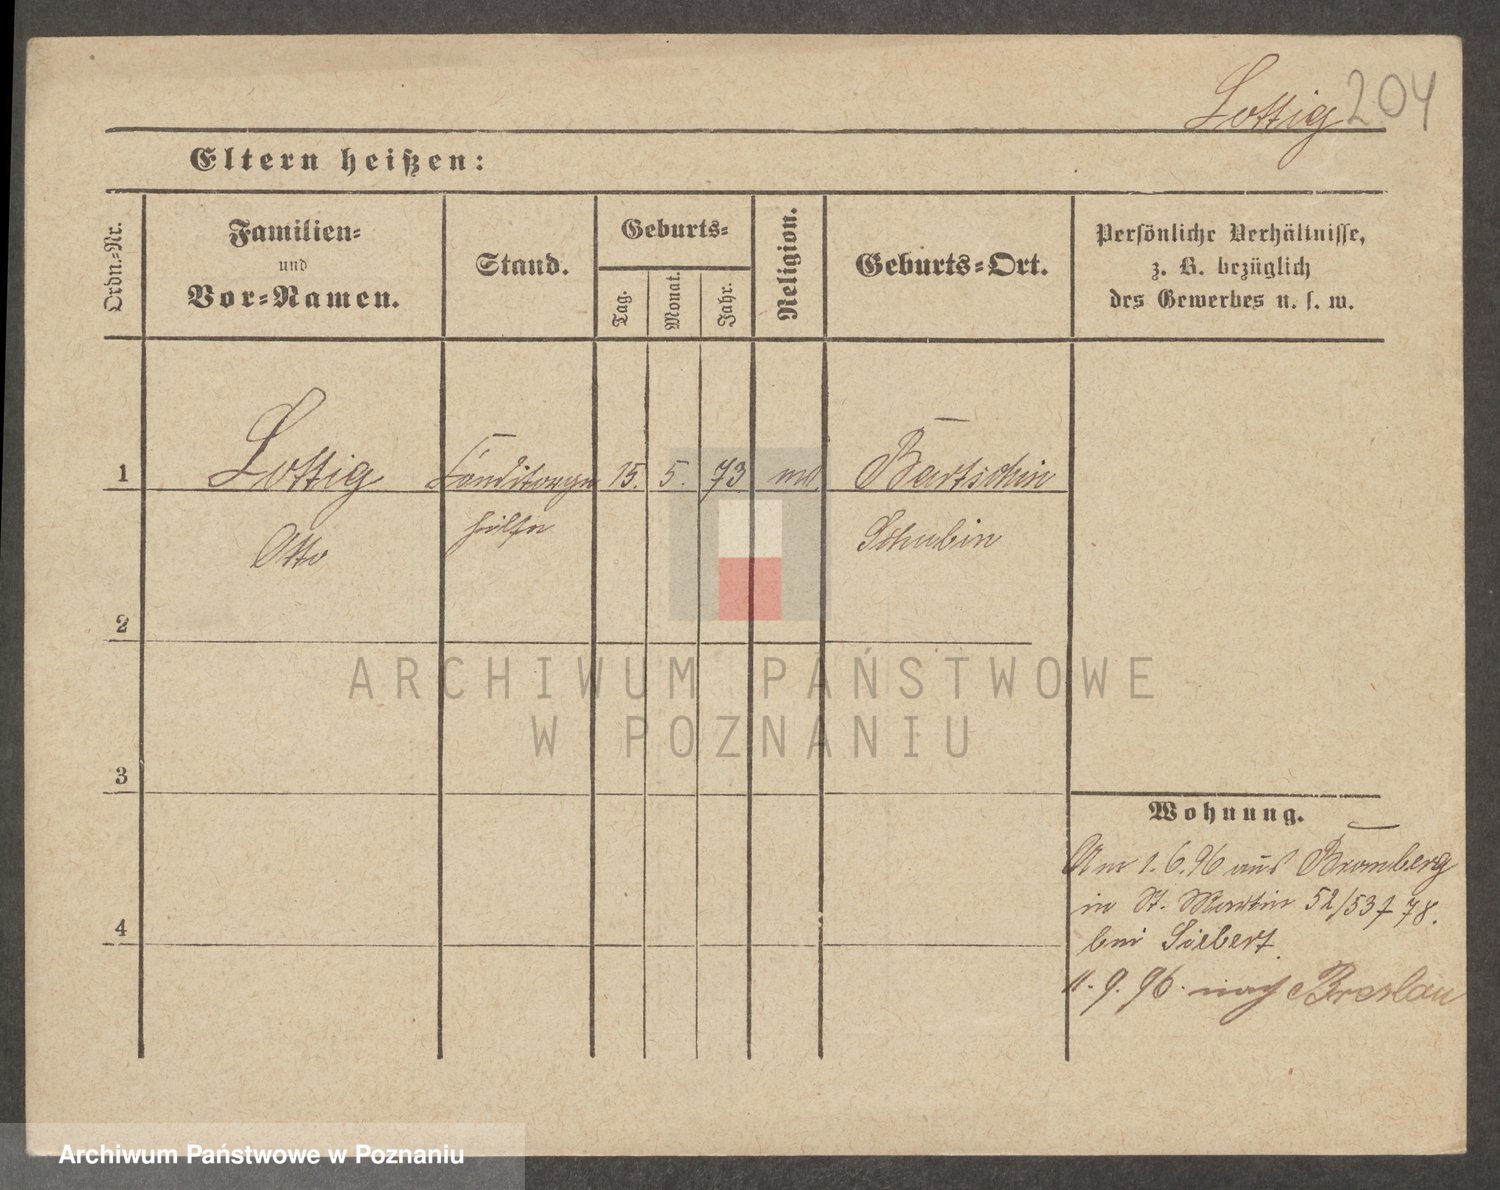 Lottig 204
Eltern heißen:
Ordn.-Nr.
Familien-
und
Vor-Namen.
Stand.
Geburts-
Tag.
Monat.
Jahr.
Religion.
Geburts-Ort.
Persönliche Verhältnisse,
z. B. bezüglich
des Gewerbes u. s. w.
1 Lottig Conditorge 15. 5. 73 Bartschin
hülfe
Otto Schubin
2
3
4
Wohnung.
Am 1.6.96 aus Bromberg
in St. Martin 52/53 78.
bei Siebert.
11.9.96. nach Breslau
ARCHIWUM PAŃSTWOWE
W POZNANIU
Archiwum Państwowe w Poznaniu